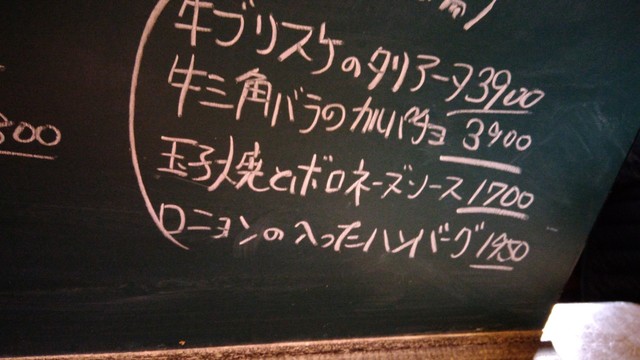 牛ブリスケのタリアータ3900
牛三角バラのカルパチョ 3400
玉子焼とボロネーズソース1700
ロニョンの入ったハンバーグ1950